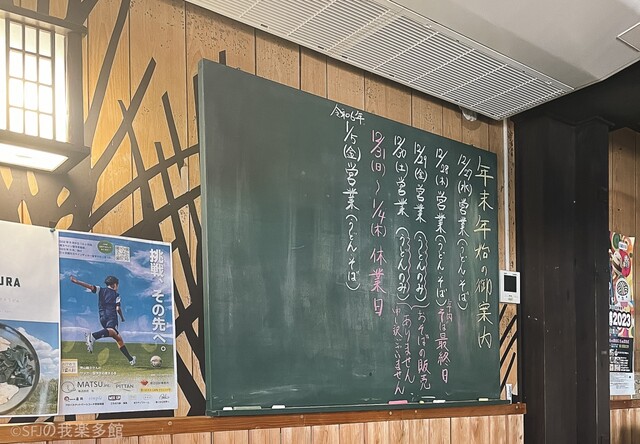 年末年始の御案内
12/27(水)営業(うどん そば)
12/28(木)営業(うどん そば)
年内そば最終日
12/29(金)営業(うどんのみ)
12/30(土)営業(うどんのみ)
おそばの販売
ありません
申し訳ございません
12/31(日)～1/4(木)休業日
令和6年
1/5(金)営業(うどん そば)
挑戦、その先へ。
MATSU
PITTAN
URA
2023
©SFJの我楽多館